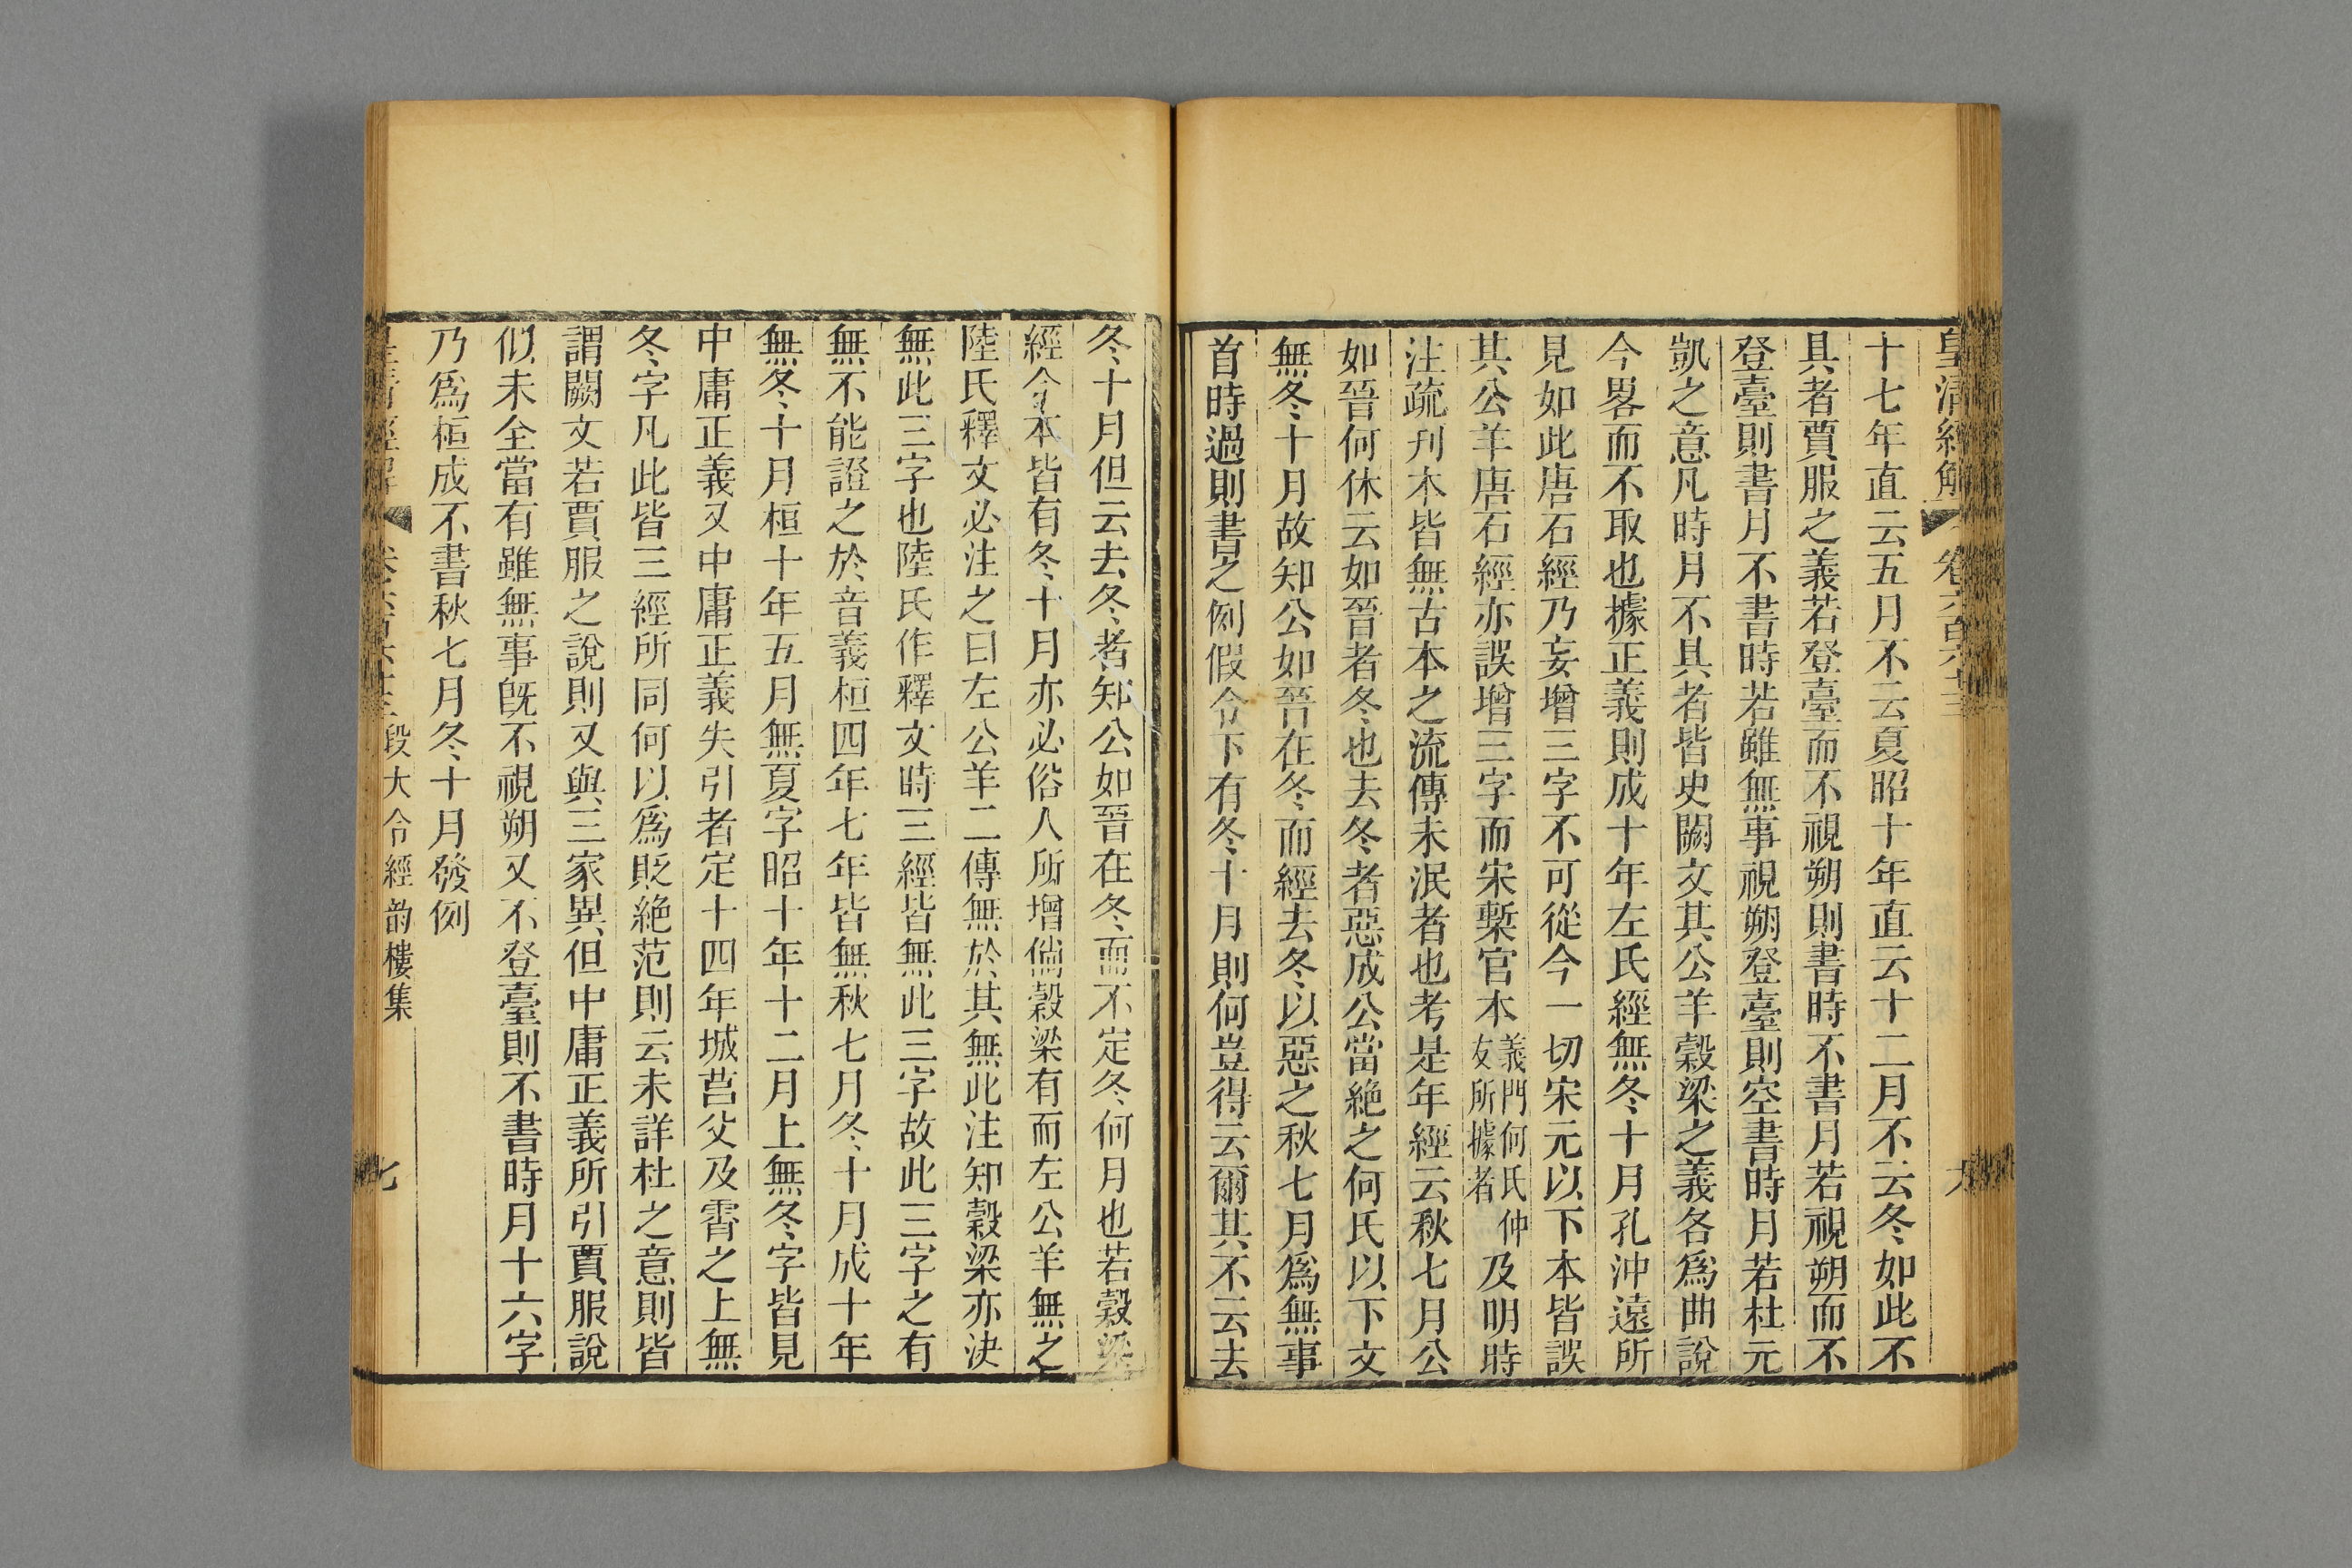 皇清經解 卷六百六十三
十七年直云五月不云夏昭十年直云十二月不云冬如此不
具者賈服之義若登臺而不視朔則書時不書月若視朔而不
登臺則書月不書時若雖無事視朔登臺則空書時月若杜元
凱之意凡時月不具者皆史闕文其公羊穀梁之義各爲曲說
今畧而不取也據正義則成十年左氏經無冬十月孔沖遠所
見如此唐石經乃妄增三字不可從今一切宋元以下本皆誤
其公羊唐石經亦誤增三字而宋槧官本義門何氏仲友所據者及明時
注疏刊本皆無古本之流傳未泯者也考是年經云秋七月公
如晉何休云如晉者冬也去冬者惡成公當絶之何氏以下文
無冬十月故知公如晉在冬而經去冬以惡之秋七月爲無事
首時過則書之例假令下有冬十月則何豈得云爾其不云去
冬十月但云去冬者知公如晉在冬而不定冬何月也若穀梁
經今本皆有冬十月亦必俗人所增倘穀梁有而左公羊無之
陸氏釋文必注之曰左公羊二傳無於其無此注知穀梁亦決
無此三字也陸氏作釋文時三經皆無此三字故此三字之有
無不能證之於音義桓四年七年皆無秋七月冬十月成十年
無冬十月桓十年五月無夏字昭十年十二月上無冬字皆見
中庸正義又中庸正義失引者定十四年城莒父及霄之上無
冬字凡此皆三經所同何以爲貶絶范則云未詳杜之意則皆
謂闕文若賈服之說則又與三家異但中庸正義所引賈服說
似未全當有雖無事旣不視朔又不登臺則不書時月十六字
乃爲桓成不書秋七月冬十月發例
皇清經解 卷六百六十三 段大令經韵樓集 七